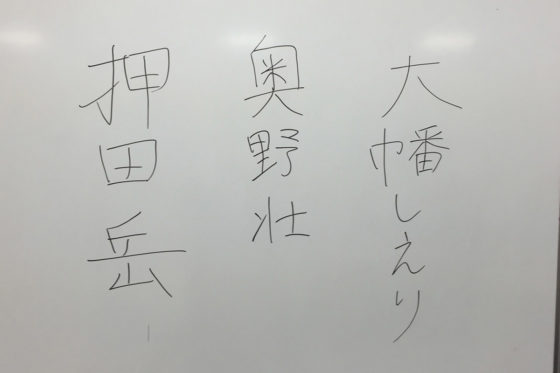 大幡しえり
奥野壮
押田岳